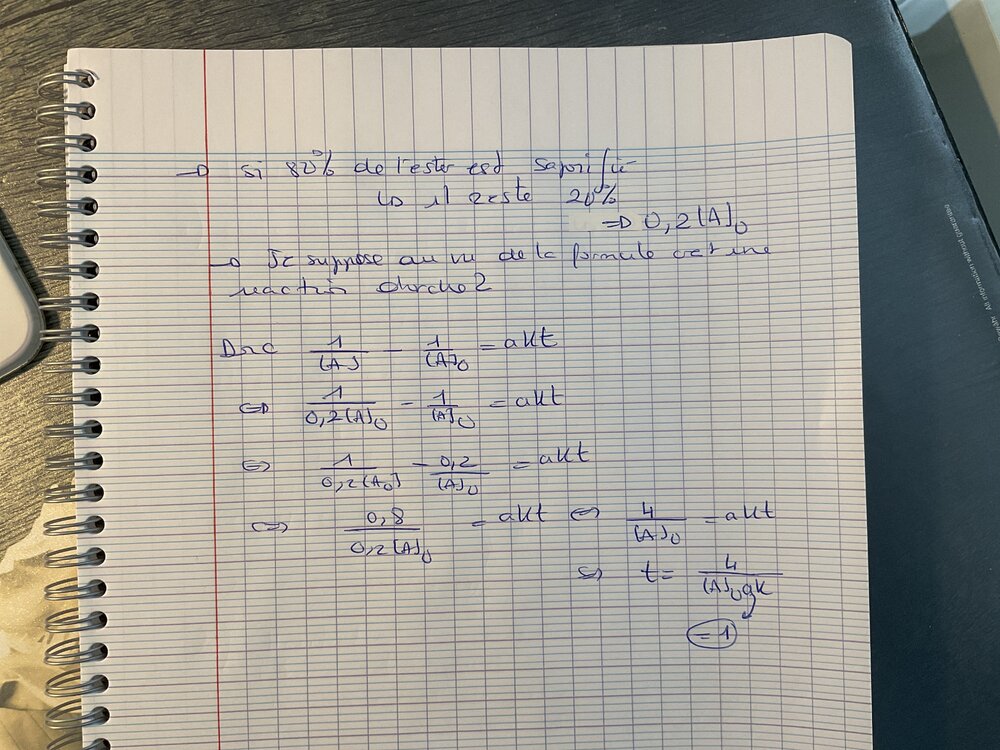 → Si 80% de l'ester est saponifié
↳ il reste 20%
=> 0,2[A]₀
→ Je suppose au vu de la formule c'est une
reaction d'ordre 2
Donc 1/[A] - 1/[A]₀ = akt
<=> 1/0,2[A]₀ - 1/[A]₀ = akt
<=> 1/0,2[A₀] - 0,2/[A]₀ = akt
<=> 0,8/0,2[A]₀ = akt <=> 4/[A]₀ = akt
<=> t = 4/[A]₀ak
= 1
All information without guarantee